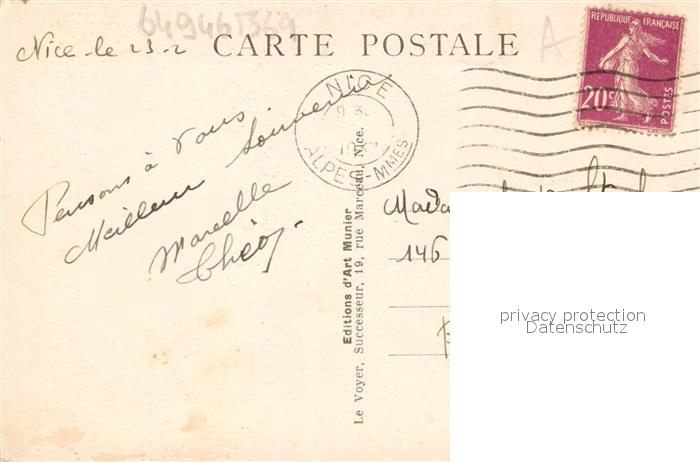 649461369
Nice-le 23-2
CARTE POSTALE
REPUBLIQUE FRANÇAISE
20c
POSTES
NICE
ALPES-MMES
Pensons à vous
Meilleur Souvenir
Marcelle
Editions d'Art Munier
Le Voyer, Successeur, 19, rue Marceau, Nice.
Mada
146
privacy protection
Datenschutz